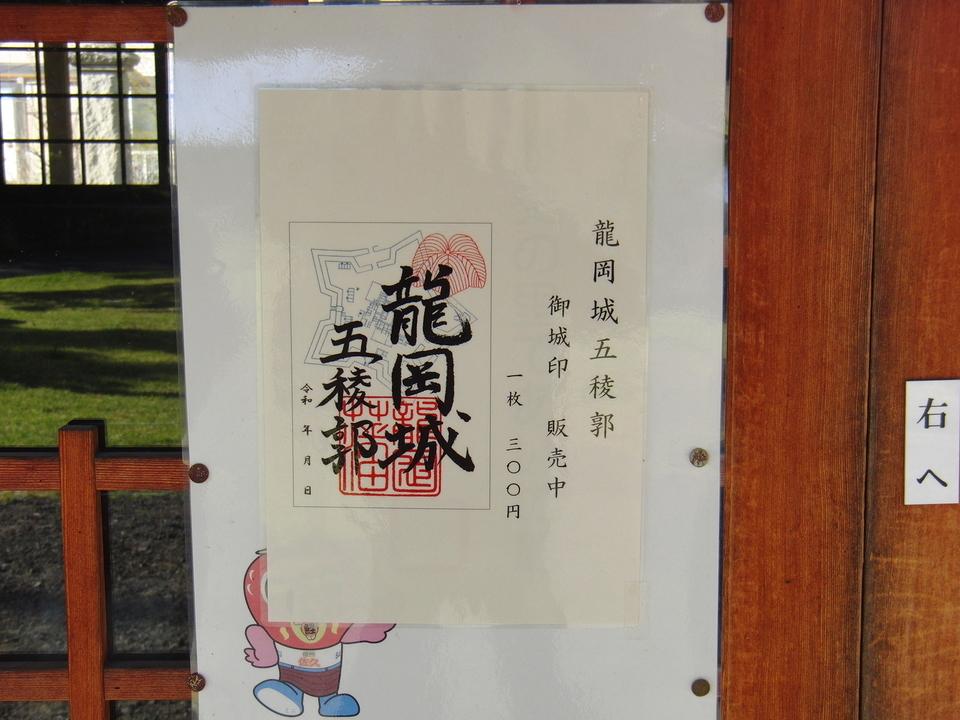 龍岡城五稜郭
御城印 販売中
一枚 三〇〇円
龍岡城
五稜郭
令和 年 月 日
佐久
右へ